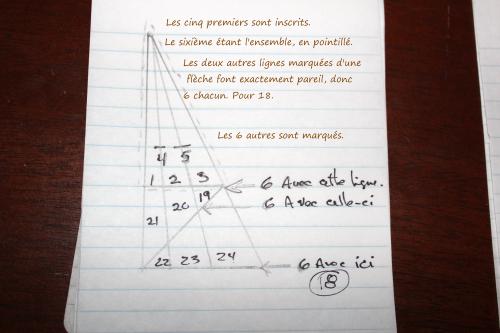 Les cinq premiers sont inscrits.
Le sixième étant l'ensemble, en pointillé.
Les deux autres lignes marquées d'une
flèche font exactement pareil, donc
6 chacun. Pour 18.
Les 6 autres sont marqués.
4 5
1 2 3
6 Avec cette ligne.
19
20
6 Avec celle-ci
21
22 23 24
6 Avec ici
18